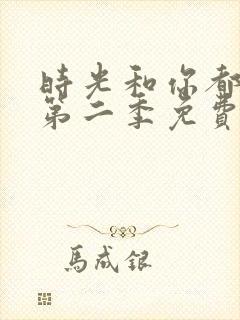 時光和你都
第二季免費
馬成銀